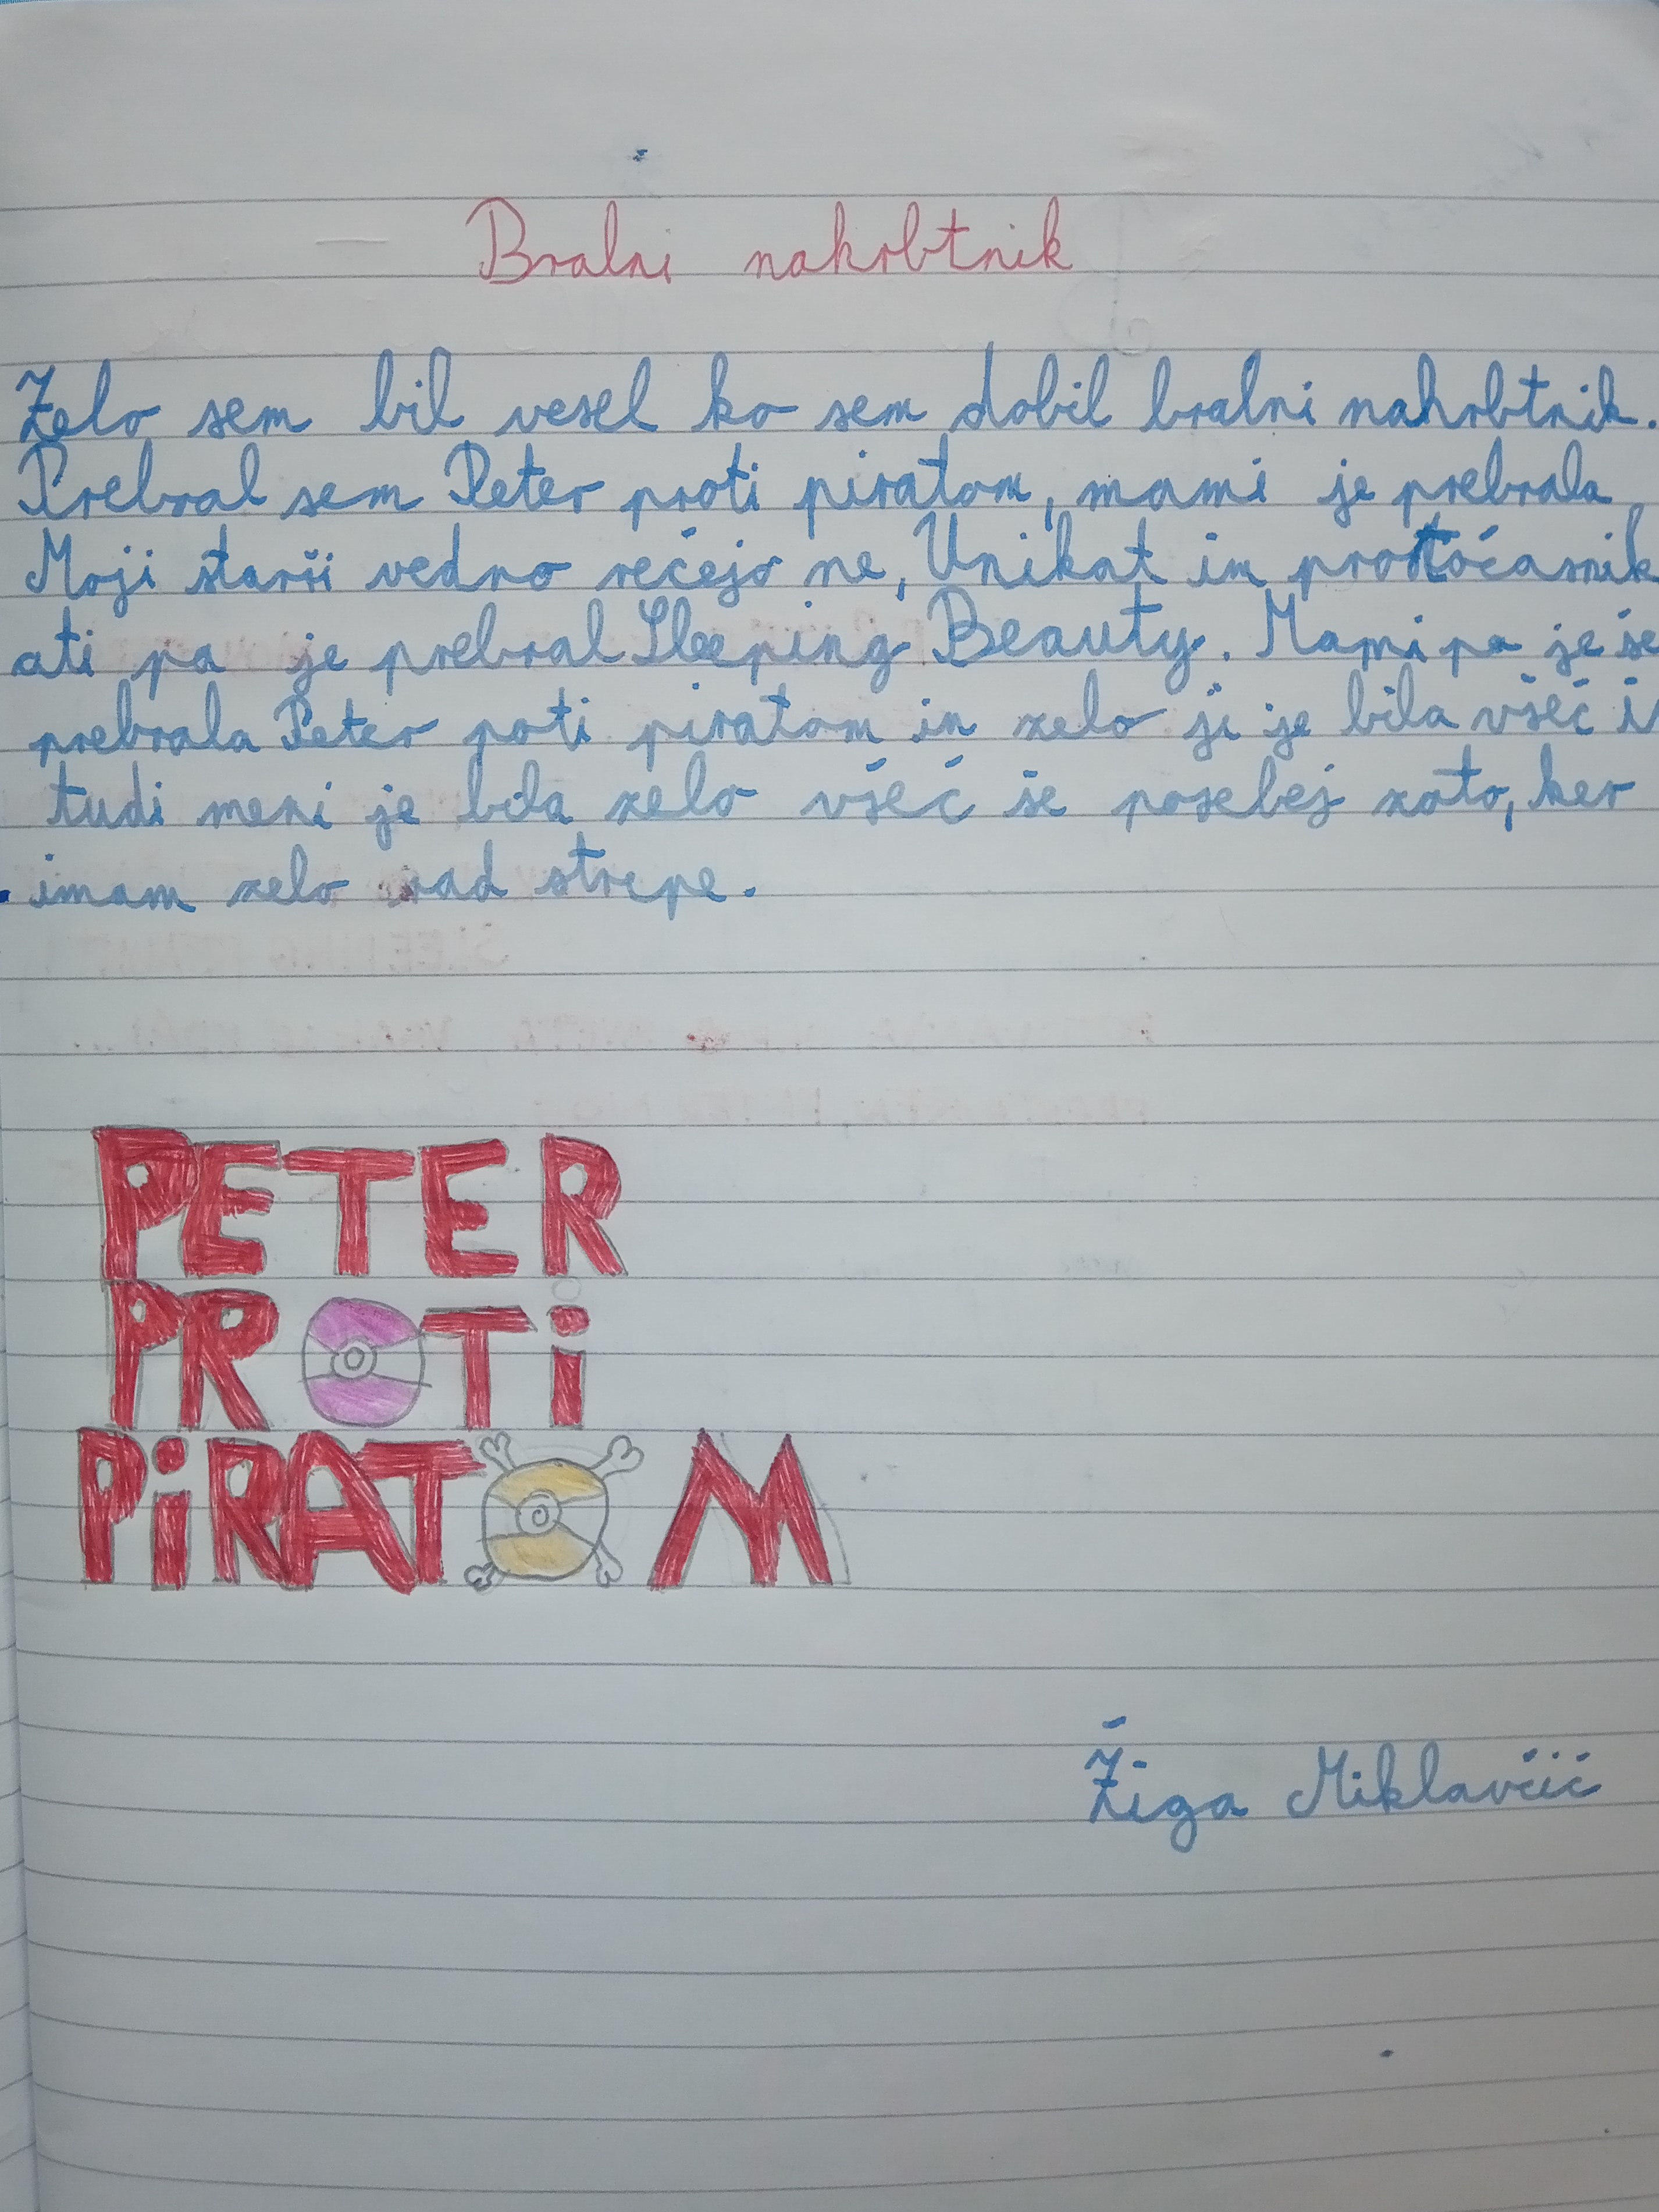 Bralni nahrbtnik
Zelo sem bil vesel ko sem dobil bralni nahrbtnik.
Prebral sem Peter proti piratom, mami je prebrala
Moji starši vedno rečejo ne, Unikat in prostočasnik
ati pa je prebral Sleeping Beauty. Mami pa je še
prebrala Peter poti piratom in zelo ji je bila všeč i
tudi meni je bila zelo všeč še posebej zato, ker
imam zelo rad stripe.
PETER
PROTi
PiRATOM
Žiga Miklavčič